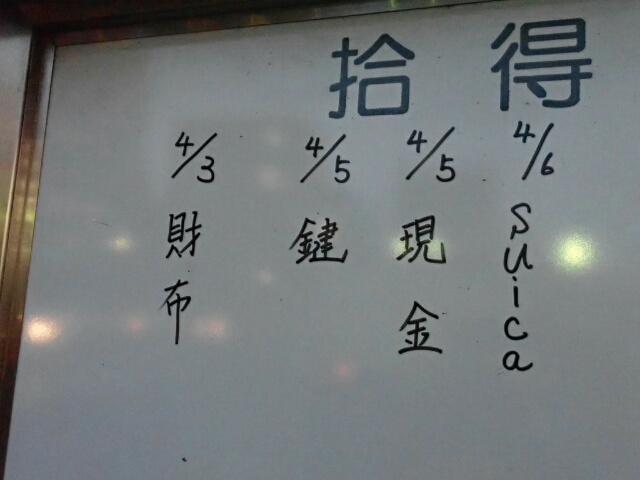 拾得
4/6 Suica
4/5 現金
4/5 鍵
4/3 財布